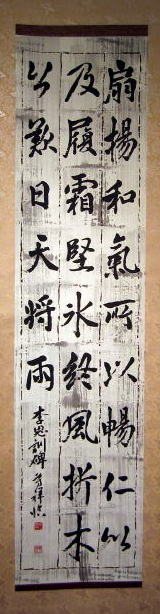 扇揚和氣所以暢仁以
及履霜堅冰終風折木
公歎曰天将雨
李思訓碑